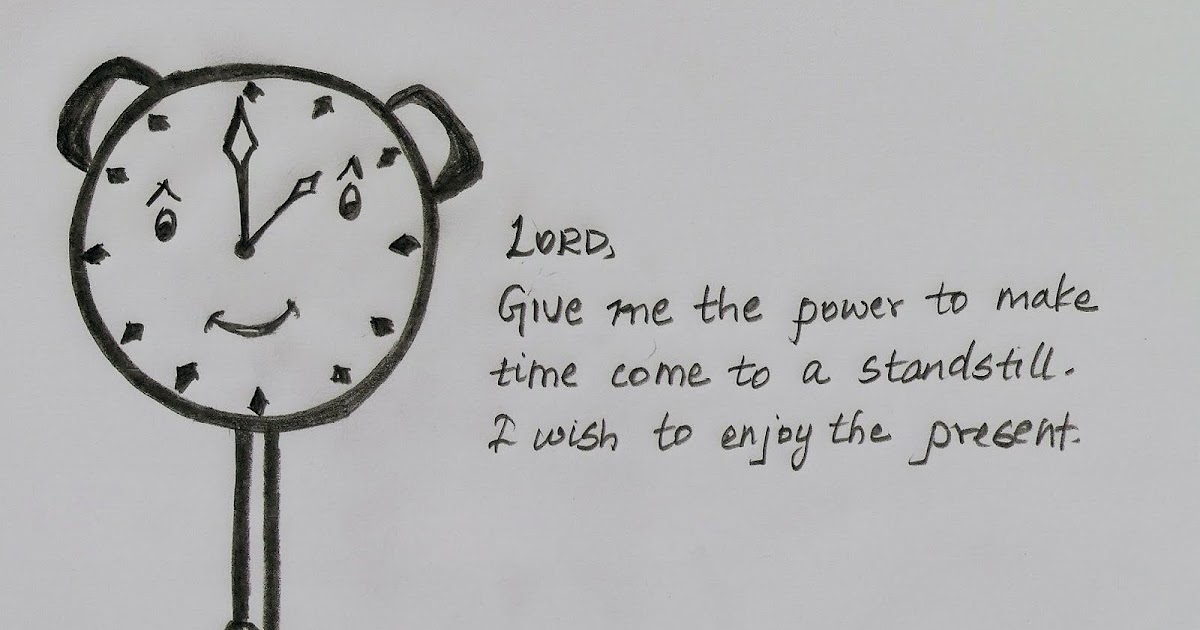 LORD,
Give me the power to make
time come to a standstill.
I wish to enjoy the present.